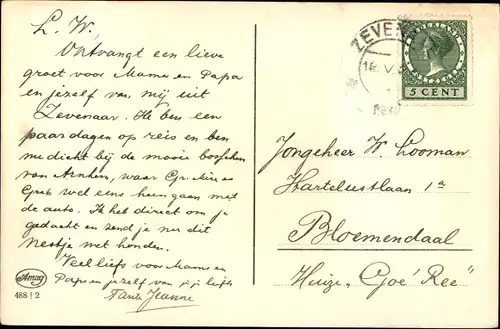 L. W.,
Ontvangt een lieve
groet voor Mama en Papa
en jezelf van mij uit
Zevenaar. Ik ben een
paar dagen op reis en ben
nu dicht bij de mooie bosschen
van Arnhem, waar
wel eens heen gaan met
de auto. Ik heb direct om je
gedacht en zend je nu dit
nestje met honden.
Veel liefs voor Mama en
Papa en jezelf van je liefh.
Tante Jeanne
Amag
488 | 2
ZEVEN
NEDERLAND
5 CENT
Jongeheer W. Looman
Hartelustlaan 1a
Bloemendaal
Huize "Goé Reé"